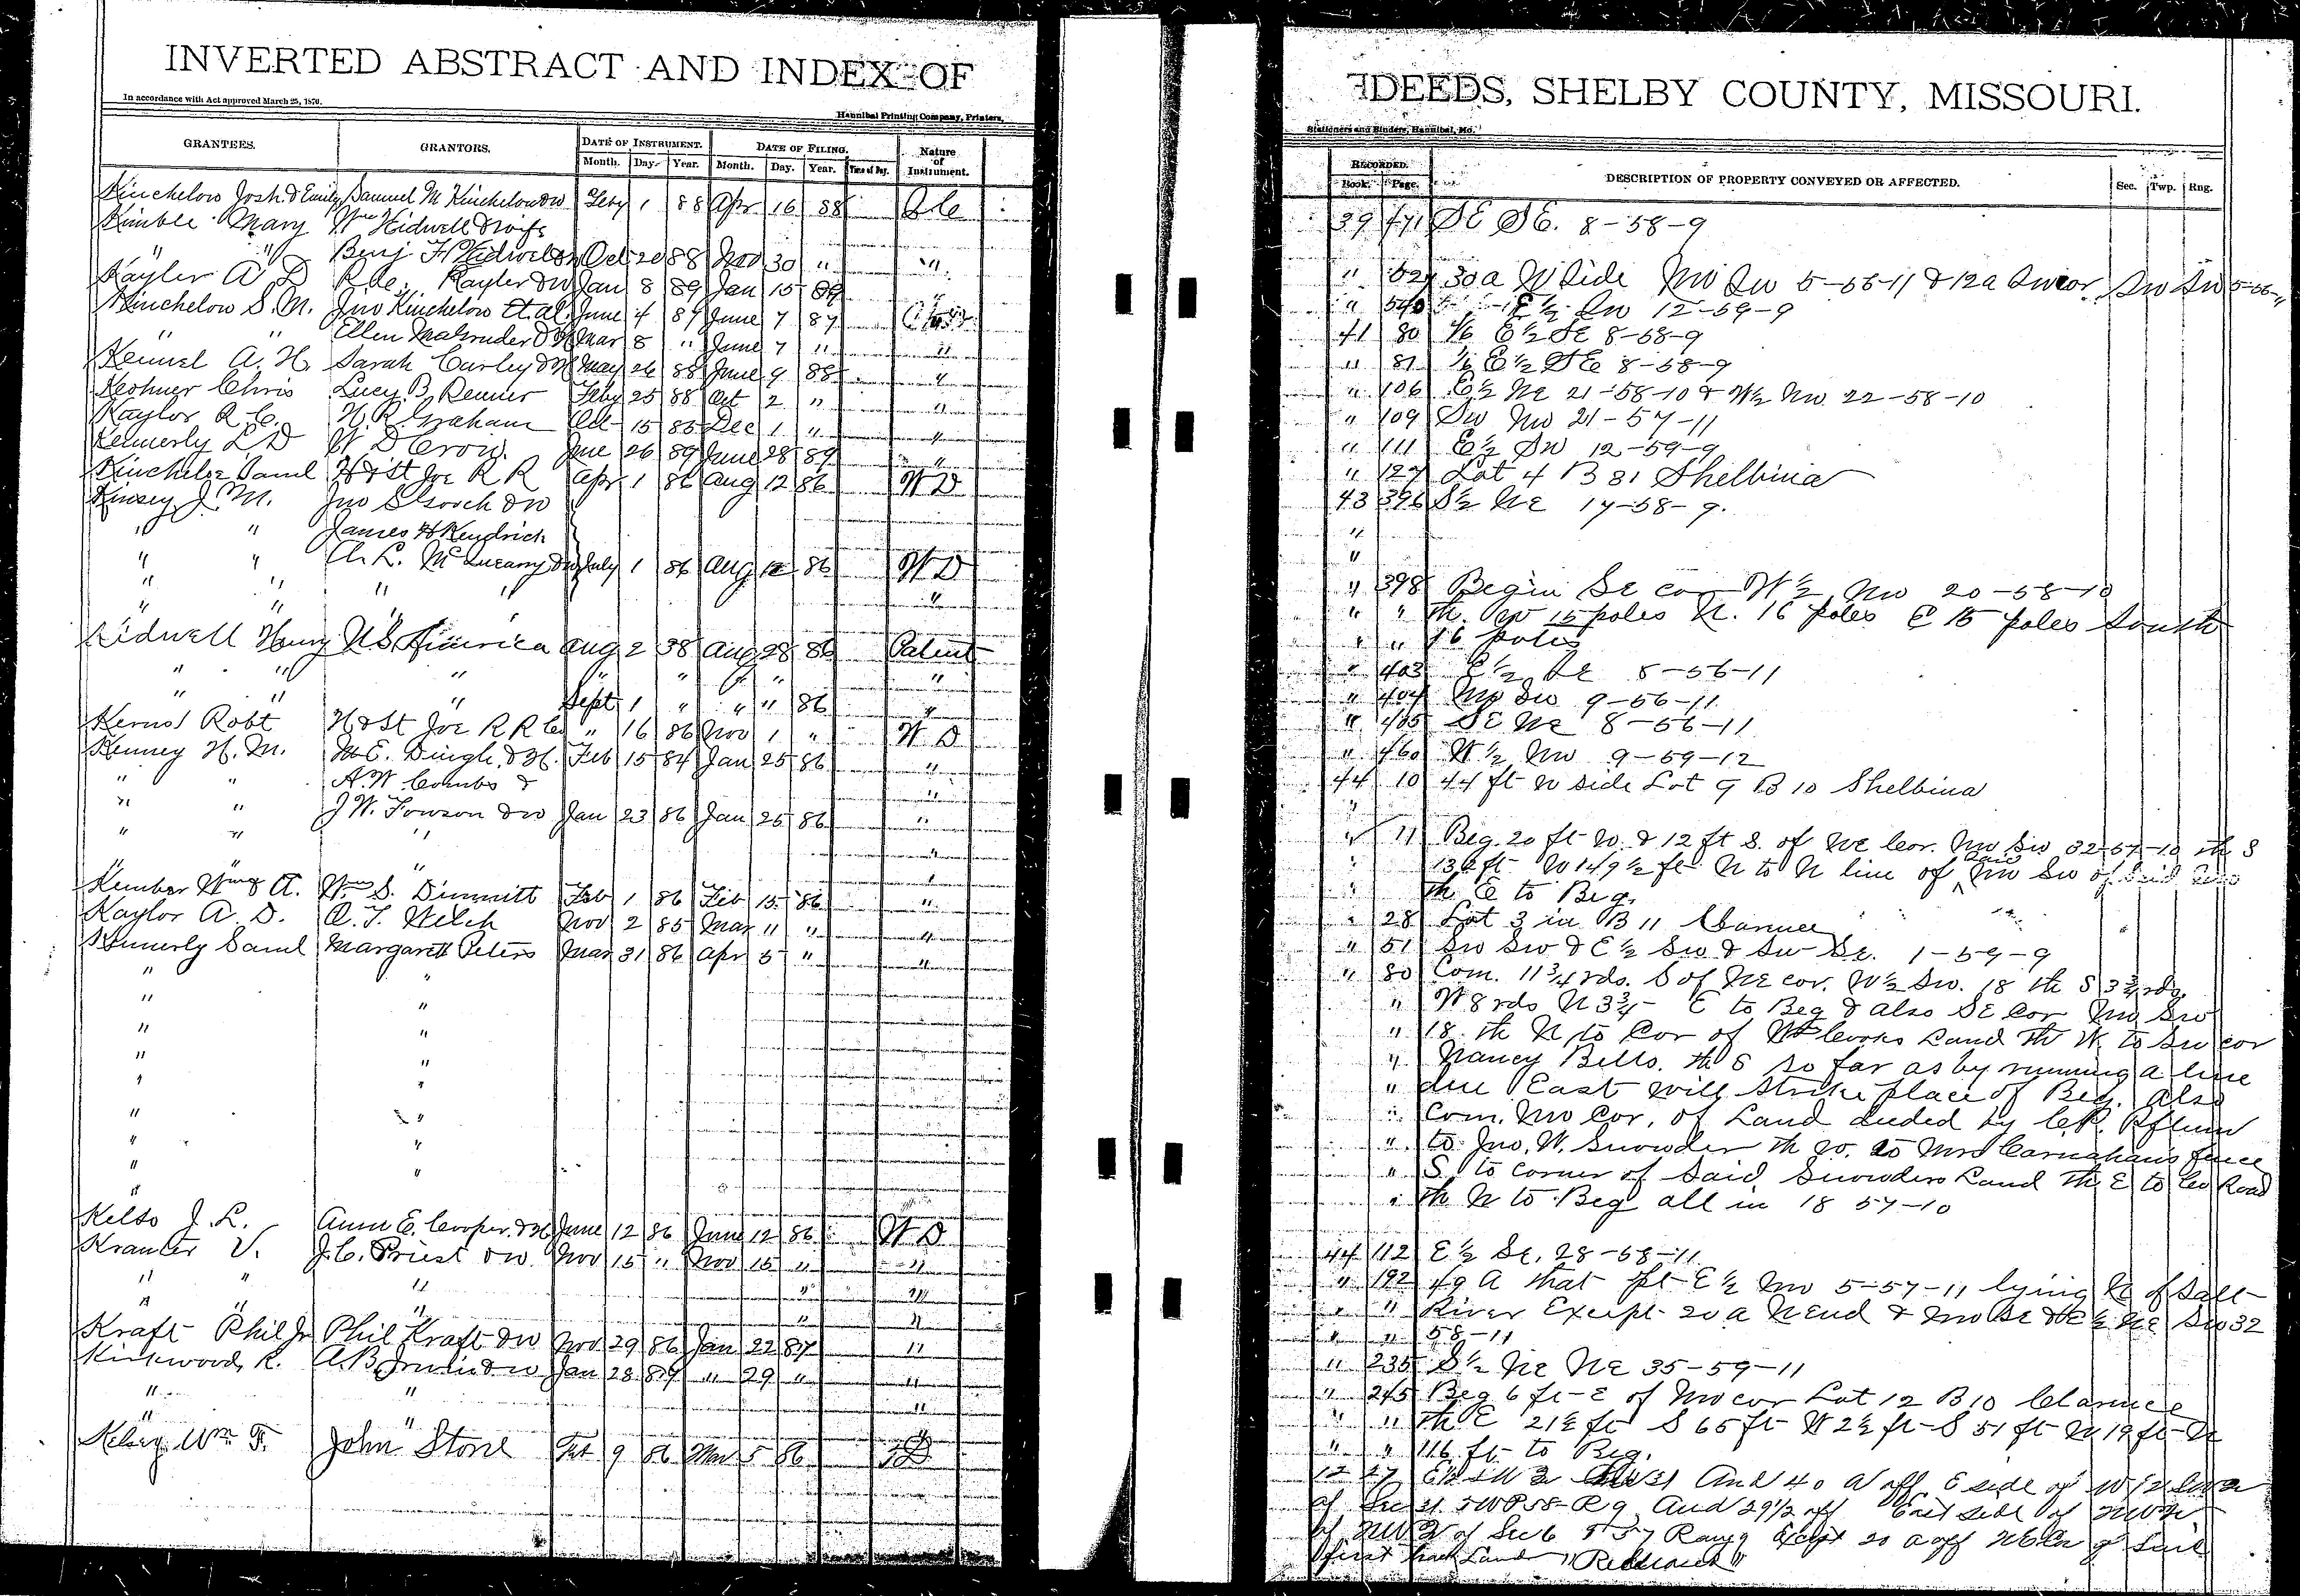 INVERTED ABSTRACT AND INDEX OF
In accordance with Act approved March 25, 1870.
Hannibal Printing Company, Printers,
GRANTEES. GRANTORS. DATE OF INSTRUMENT. DATE OF FILING. Nature of Instrument.
Month. Day. Year. Month. Day. Year. Time of Day.
Kinchelow Josh. & Emily Samuel M Kinchelow & W Feby 1 88 Apr 16 88
Kimble Mary Wm Kidwell & wife
" " Benj F Kidwell Oct 20 88 Nov 30 " "
Kayler A D R C. Kayler & W Jan 8 89 Jan 15 89 "
Kinchelow S. M. Jno Kinchelow Et al June 4 87 June 7 87
" " Ellen Magruder & H Mar 8 " June 7 " "
Kennel A. H. Sarah Curley & H May 26 88 June 9 88 "
Keohner Chris Lucy B Renner Feby 25 88 Oct 2 " "
Kaylor R. C. H. R. Graham Oct 15 88 Dec 1 " "
Kennerly L D W D Crow June 26 89 June 28 89 "
Kincheloe Saml H & St Joe R R Apr 1 86 Aug 12 86 W D
Kinsey J. M. Jno S Gooch & W
" " James H Kendrick
" " A. L. McQueary & W July 1 86 Aug 12 86 W D
" " " "
" "
Kidwell Henry U S America Aug 2 38 Aug 28 86 Patent
" " " " " " "
" " " Sept 1 " " " 86 "
Kerns Robt H & St Joe R R Co " 16 86 Nov 1 " W D
Kenney H. M. M E. Dingle & H. Feb 15 84 Jan 25 86 "
" " A. W. Combs & "
" " J W. Towson & W Jan 23 86 Jan 25 86 "
" " " "
" " "
Kember Wm A. Wm S. Dimmitt Feb 1 86 Feb 15 86 "
Kaylor A. D. A. T. Welch Nov 2 85 Mar 11 " "
Kennerly Saml Margarett Peters Mar 31 86 Apr 5 " "
" "
" "
" "
" "
" "
" "
" "
" "
"
Kelso J. L. Ann E. Cooper & H June 12 86 June 12 86 W D
Krauter V. J. C. Priest & W Nov 15 " Nov 15 " "
" " " " "
" " " " "
Kraft Phil Jr Phil Kraft & W Nov 29 86 Jan 22 87 "
Kirkwood R. A. B. Irwin & W Jan 28 87 " 29 " "
" " "
" " "
Kelsey Wm F. John Stone Oct 9 86 Mar 5 86
DEEDS, SHELBY COUNTY, MISSOURI.
Stationers and Binders, Hannibal, Mo.
RECORDED. DESCRIPTION OF PROPERTY CONVEYED OR AFFECTED. Sec. Twp. Rng.
Book. Page.
39 471 SE SE. 8-58-9
" 527 30 a W Side NW SW 5-56-11 & 12 a SW cor SW SW 5-56-11
" 540 E ½ SW 12-59-9
41 80 1/6 E ½ SE 8-58-9
" 81 1/6 E ½ SE 8-58-9
" 106 E ½ NE 21-58-10 & W ½ NW 22-58-10
" 109 SW NW 21-57-11
" 111 E ½ SW 12-59-9
" 127 Lot 4 B 31 Shelbina
43 396 S ½ NE 17-58-9.
"
"
" 398 Begin SE cor W ½ NW 20-58-10
" " th. W 15 poles N. 16 poles E 15 poles South
" " 16 poles
" 403 E ½ SE 8-56-11
" 404 NW SW 9-56-11
" 405 SE NE 8-56-11
" 460 W ½ NW 9-59-12
44 10 44 ft W side Lot 9 B 10 Shelbina
"
" 11 Beg. 20 ft W. & 12 ft S. of NE Cor. NW SW 32-57-10 th S
" 136 ft W 149 ½ ft N to N line of said NW SW
" th E to Beg.
" 28 Lot 3 in B 11 Clarence
" 51 SW SW & E ½ SW & SW SE. 1-59-9
" 80 Com. 11 ¾ rds. S of NE cor. W ½ SW. 18 th S 3 ¾ rds.
" W 8 rds N 3 ¾ E to Beg & also SE Cor NW SW
" 18. th N to Cor of Wm Cooks Land th W. to SW cor
" Nancy Bells. th S so far as by running a line
" due East will strike place of Beg. Also
" Com. NW Cor. of Land deeded by C. R. Pflum
" to Jno. W. Snowder th W. to Mrs Carnahans fence
" S. to corner of Said Snowders Land th E to Co Road
" th N to Beg all in 18 57-10
44 112 E ½ SE. 28-58-11
" 192 49 A that pt E ½ NW 5-57-11 lying N of Salt
" " River Except 20 a N end & NW SE & E ½ NE SW 32
" " 58-11
" 235 S ½ NE NE 35-59-11
" 245 Beg 6 ft E of NW cor Lot 12 B 10 Clarence
" " th E 21 ½ ft S 65 ft W 2 ½ ft S 51 ft W 19 ft N
" " 116 ft to Beg.
31 And 40 a off E side of W ½
of Sec 31 TWP 58 R 9 And 29 1/2 off East side of
of Sec 6 Rang 9 Except 20 a off of said
first